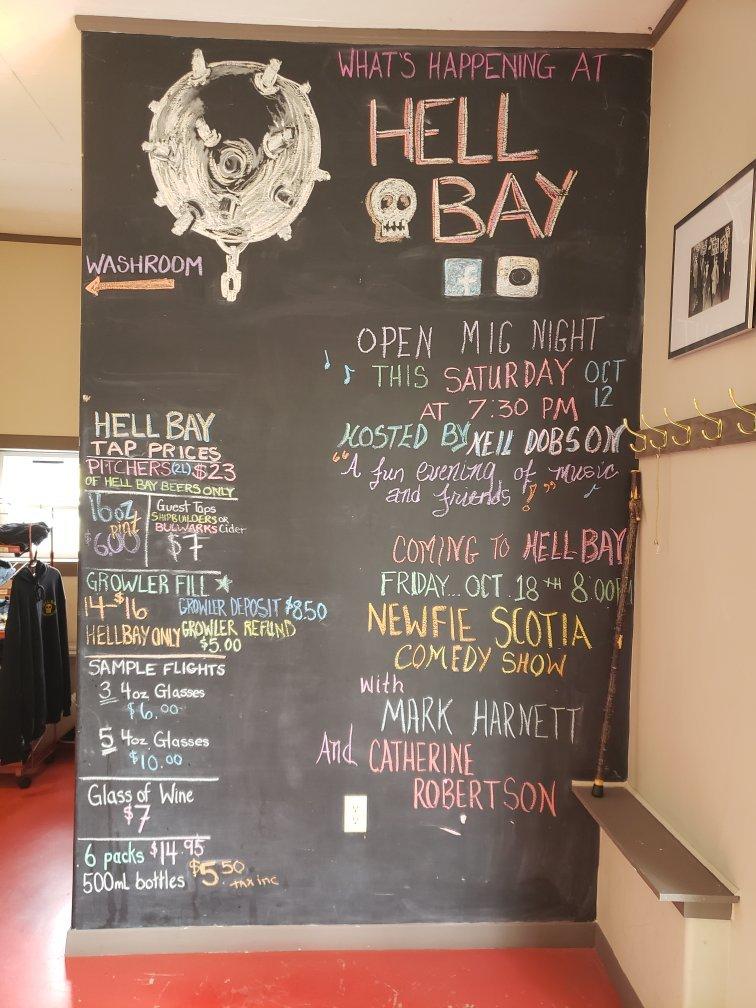 WHAT'S HAPPENING AT
HELL
BAY
WASHROOM
OPEN MIC NIGHT
THIS SATURDAY OCT
12
AT 7:30 PM
HOSTED BY NEIL DOBSON
"A fun evening of music
and friends!"
COMING TO HELL BAY
FRIDAY... OCT. 18TH 8:00
NEWFIE SCOTIA
COMEDY SHOW
with
MARK HARNETT
And CATHERINE
ROBERTSON
HELL BAY
TAP PRICES
PITCHERS (2L) $23
OF HELL BAY BEERS ONLY
16oz
pint
$6.00
Guest Taps
SHIPBUILDERS OR
BULWARKS Cider
$7
GROWLER FILL
14-$16
HELLBAY ONLY
GROWLER DEPOSIT $8.50
GROWLER REFUND
$5.00
SAMPLE FLIGHTS
3 4oz Glasses
$6.00
5 4oz Glasses
$10.00
Glass of Wine
$7
6 packs $14.95
500mL bottles $5.50
tax inc